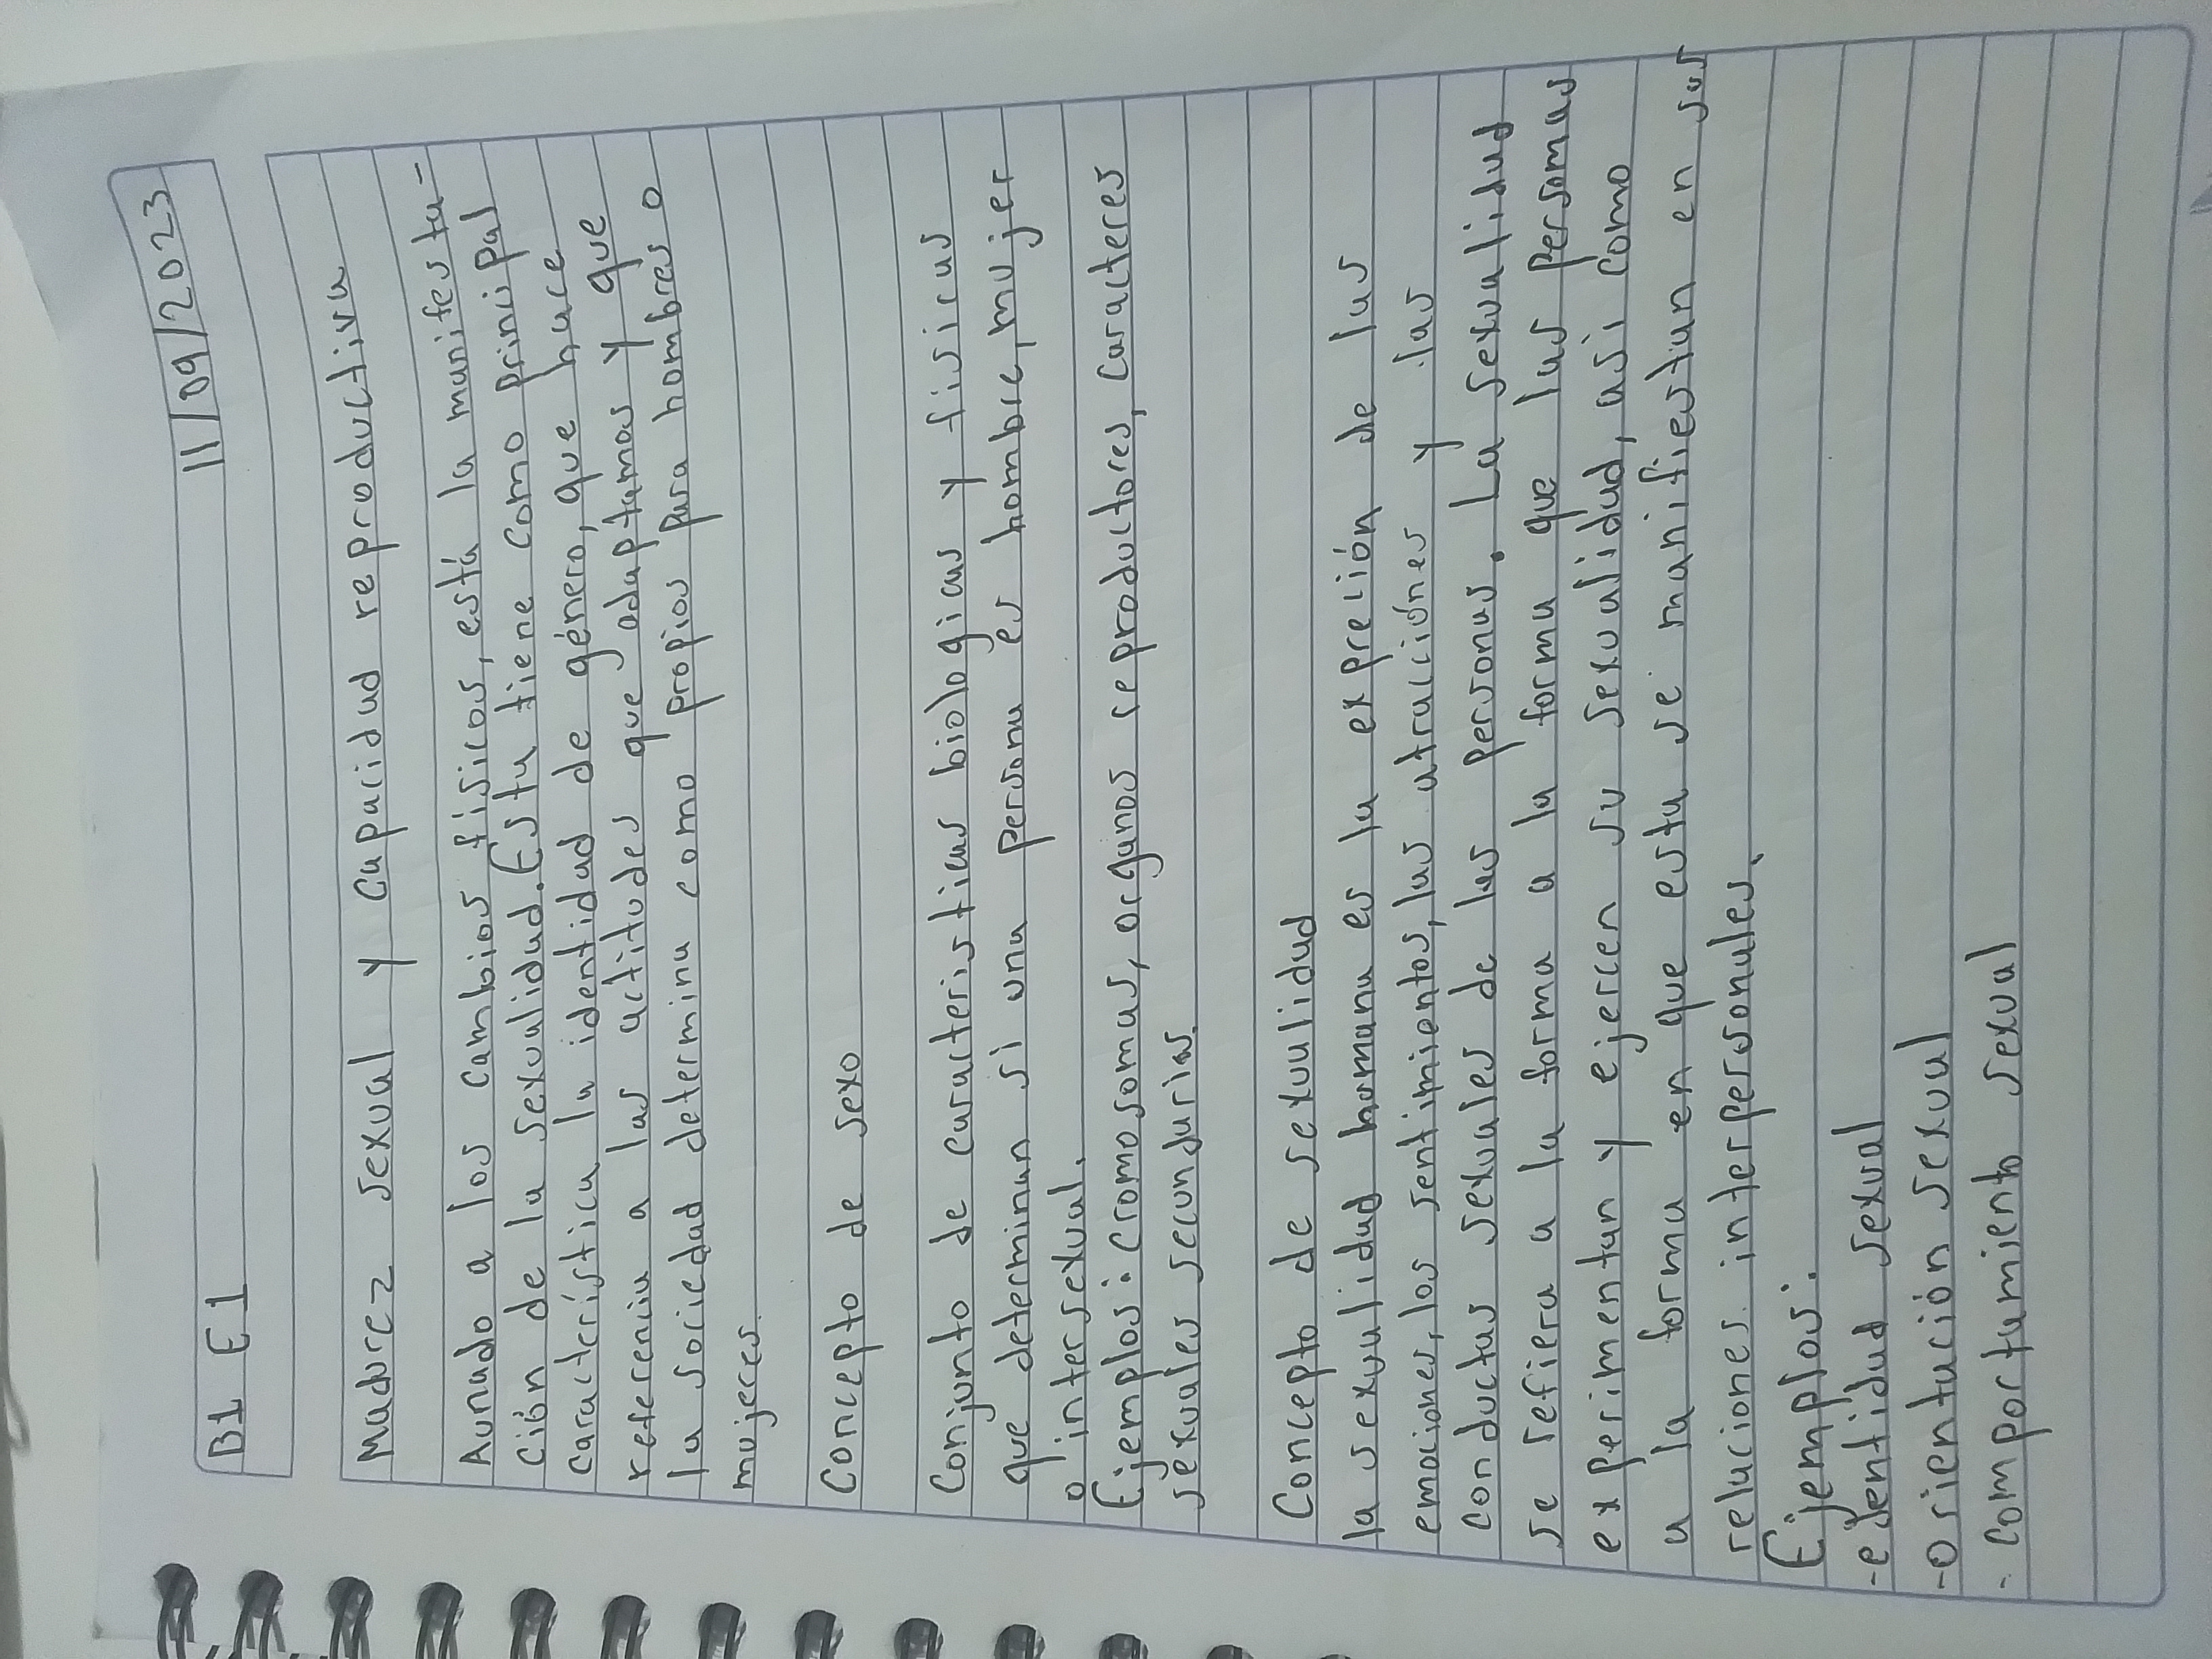 B1 E1 11/09/2023
Madurez sexual y capacidad reproductiva
Aunado a los cambios físicos, está la manifesta-
ción de la sexualidad. Esta tiene como principal
característica la identidad de género, que hace
referencia a las actitudes que adaptamos y que
la sociedad determina como propios para hombres o
mujeres.
Concepto de sexo
Conjunto de caracteristicas biologicas y fisicas
que determinan si una persona es hombre, mujer
o intersexual.
Ejemplos: Cromosomas, organos reproductores, caracteres
sexuales secundarias.
Concepto de sexualidad
la sexualidad humana es la expreción de las
emociones, los sentimientos, las atracciónes y las
conductas sexuales de las personas. La sexualidad
se refiera a la forma a la forma que las personas
experimentan y ejercen su sexualidad, asi como
a la forma en que esta se manifiestan en sus
relaciones interpersonales.
Ejemplos:
-edentidad sexual
-Orientación sexual
- comportamiento sexual